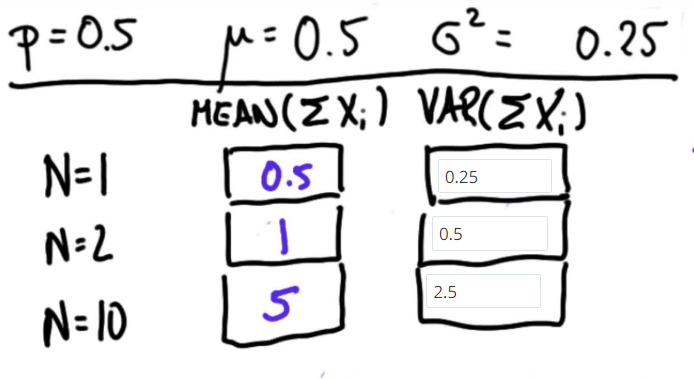 p = 0.5 μ = 0.5 σ² = 0.25
MEAN(Σ Xi) VAR(Σ Xi)
N=1 0.5 0.25
N=2 1 0.5
N=10 5 2.5